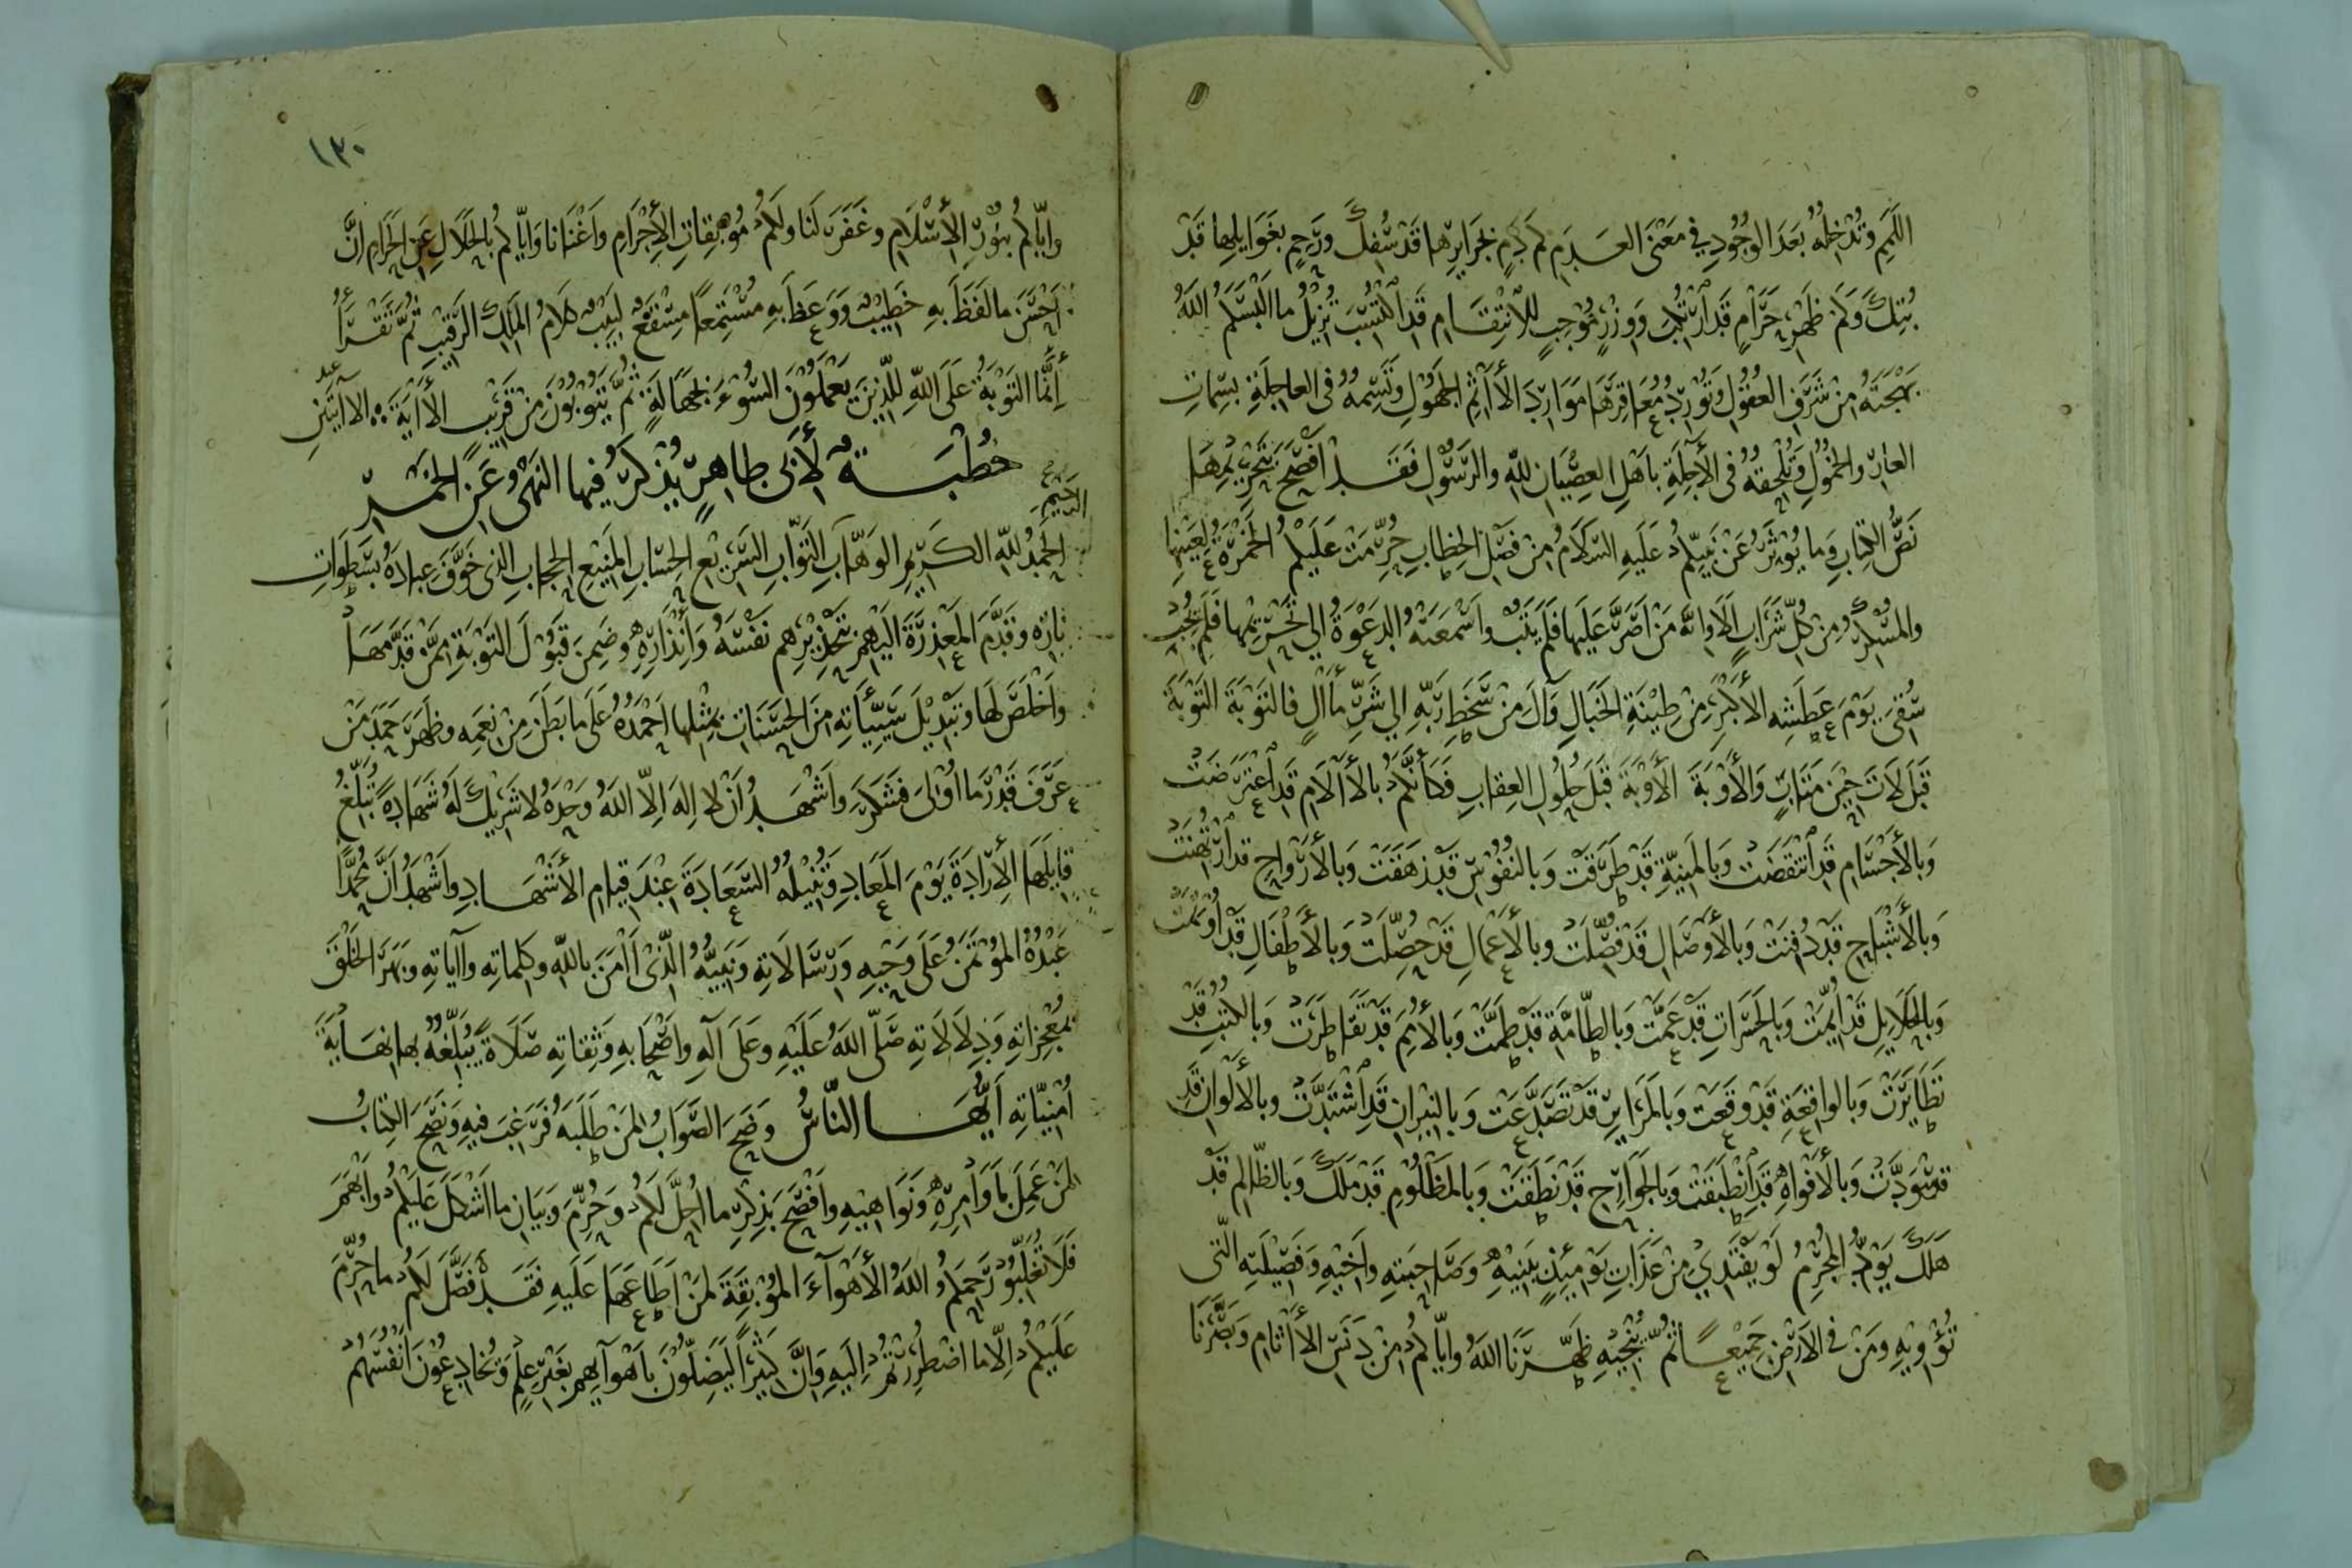 اللَّمَمِ وَتُدْخِلُهُ بَعْدَ الوُجُودِ فِي مَعْنَى العَدَمِ كَم دَمٍ بِجَرَايِرِهَا قَدْ سُفِكَ وَرَحِمٍ بِغَوَايِلِهَا قَدْ
بُتِكَ وَكَمْ ظَهْرِ حَرَامٍ قَدِ ارْتُكِبَ وَوِزْرٍ مُوْجِبٍ لِلاِنْتِقَامِ قَدِ اكْتُسِبَ تُزِيْلُ مَا أَلْبَسَكُمُ اللهُ
بَهْجَتَهُ مِنْ شَرَفِ العُقُوْلِ وَتُوْرِدُ مُعَاقِرَهَا مَوَارِدَ الأَاثِمِ الجَهُوْلِ وَتَسِمُهُ فِي العَاجِلَةِ بِسِمَاتِ
العَارِ وَالخُمُوْلِ وَتُلْحِقُهُ فِي الأَجِلَةِ بِأَهْلِ العِصْيَانِ لِلّهِ وَالرَّسُوْلِ فَقَدْ أَفْصَحَ بِتَحْرِيْمِهَا
نَصُّ الكِتَابِ وَمَا يُوْثَرُ عَنْ نَبِيِّكُمْ عَلَيْهِ السَّلَامُ مِنْ فَصْلِ الخِطَابِ حُرِّمَتْ عَلَيْكُمُ الخَمْرَةُ لِعَيْنِهَا
وَالمُسْكِرُ مِنْ كُلِّ شَرَابٍ أَلَا وَإِنَّهُ مَنْ أَصَرَّ عَلَيْهَا فَلَمْ يَتُبْ وَأَسْمَعَتْهُ الدَّعْوَةُ إِلَي تَحْرِيْمِهَا فَلَمْ يُجِبْ
سُقِيَ يَوْمَ عَطَشِهِ الأَكْبَرِ مِنْ طِيْنَةِ الخَبَالِ وَآلَ مِنْ سَخَطِ رَبِّهِ إِلَي شَرِّ مَأَالٍ فَالتَّوْبَةَ التَّوْبَةَ
قَبْلَ لَاتَ حِيْنَ مَتَابٍ وَالأَوْبَةَ الأَوْبَةَ قَبْلَ حُلُوْلِ العِقَابِ فَكَأَنَّكُمْ بِالأَالَامِ قَدِ اعْتَرَضَتْ
وَبِالأَجْسَامِ قَدِ انْتَقَضَتْ وَبِالمَنِيَّةِ قَدْ طَرَقَتْ وَبِالنُّفُوْسِ قَدْ زَهَقَتْ وَبِالأَرْوَاحِ قَدِ ارْتُهِنَتْ
وَبِالأَشْبَاحِ قَدْ دُفِنَتْ وَبِالأَوْصَالِ قَدْ فُصِّلَتْ وَبِالأَعْمَالِ قَدْ حُصِّلَتْ وَبِالأَطْفَالِ قَدْ أُوْتِمَتْ
وَبِالحَلَايِلِ قَدْ أُيِّمَتْ وَبِالحَسَرَاتِ قَدْ عَمَّتْ وَبِالطَّامَّةِ قَدْ طَمَّتْ وَبِالأُمَمِ قَدْ تَقَاطَرَتْ وَبِالكُتُبِ قَدْ
تَطَايَرَتْ وَبِالوَاقِعَةِ قَدْ وَقَعَتْ وَبِالمَرَايِرِ قَدْ تَصَدَّعَتْ وَبِالنِّيْرَانِ قَدِ اشْتَدَّتْ وَبِالأَلْوَانِ قَدِ
قد اسْوَدَّتْ وَبِالأَفْوَاهِ قَدِ انْطَبَقَتْ وَبِالجَوَارِحِ قَدْ نَطَقَتْ وَبِالمَظْلُوْمِ قَدْ مَلَكَ وَبِالظَّالِمِ قَدْ
هَلَكَ يَوَدُّ المُجْرِمُ لَوْ يَفْتَدِيْ مِنْ عَذَابِ يَوْمَئِذٍ بِبَنِيْهِ وَصَاحِبَتِهِ وَأَخِيْهِ وَفَصِيْلَتِهِ الَّتِي
تُؤْوِيْهِ وَمَنْ فِي الأَرْضِ جَمِيْعًا ثُمَّ يُنْجِيْهِ طَهَّرَنَا اللهُ وَإِيَّاكُمْ مِنْ دَنَسِ الأَاثَامِ وَبَصَّرَنَا
١٣٠
وَإِيَّاكُمْ بِنُوْرِ الأِسْلَامِ وَغَفَرَ لَنَا وَلَكُمْ مُوْبِقَاتِ الأَجْرَامِ وَأَغْنَانَا وَإِيَّاكُمْ بِالحَلَالِ عَنِ الحَرَامِ إِنَّ
أَحْسَنَ مَا لَفَظَ بِهِ خَطِيْبٌ وَوَعَظَ بِهِ مُسْتَمِعًا مِصْقَعٌ لَبِيْبٌ كَلَامُ المَلِكِ الرَّقِيْبِ ثُمَّ تَقْرَأُ
إِنَّمَا التَّوْبَةُ عَلَى اللهِ لِلَّذِيْنَ يَعْمَلُوْنَ السُّوْءَ بِجَهَالَةٍ ثُمَّ يَتُوْبُوْنَ مِنْ قَرِيْبٍ الأَايَةَ ۞ الاايتين
خُطْبَةٌ لأَبِي طَاهِرٍ يُذْكَرُ فِيهَا النَّهْيُ عَنِ الخَمْرِ
الحَمْدُ لِلّهِ الكَرِيْمِ الوَهَّابِ التَّوَّابِ السَّرِيْعِ الحِسَابِ المَنِيْعِ الحِجَابِ الَّذِي خَوَّفَ عِبَادَهُ بِسَطَوَاتِ
الرحيم
نَارِهِ وَقَدَّمَ المَعْذِرَةَ إِلَيْهِمْ بِتَحْذِيْرِهِمْ نَفْسَهُ وَإِنْذَارِهِ وَضَمِنَ قَبُوْلَ التَّوْبَةِ مِمَّنْ قَدَّمَهَا
وَأَخْلَصَ لَهَا وَتَبْدِيْلَ سَيِّئَاتِهِ مِنَ الحَسَنَاتِ بِمِثْلِهَا أَحْمَدُهُ عَلَى مَا بَطَنَ مِنْ نِعَمِهِ وَظَهَرَ حَمْدَ مَنْ
عَرَفَ قَدْرَ مَا أُوْلِيَ فَشَكَرَ وَأَشْهَدُ أَنْ لَا إِلهَ إِلَّا اللهُ وَحْدَهُ لَا شَرِيْكَ لَهُ شَهَادَةً تُبَلِّغُ
قَايِلَهَا الأِرَادَةَ يَوْمَ المَعَادِ وَتُنِيْلُهُ السَّعَادَةَ عِنْدَ قِيَامِ الأَشْهَادِ وَأَشْهَدُ أَنَّ مُحَمَّدًا
عَبْدُهُ المُؤْتَمَنُ عَلَى وَحْيِهِ وَرِسَالَاتِهِ وَنَبِيُّهُ الَّذِيْ أَامَنَ بِاللهِ وَكَلِمَاتِهِ وَآيَاتِهِ وَبَهَرَ الخَلْقَ
بِمُعْجِزَاتِهِ وَدِلَالَاتِهِ صَلَّى اللهُ عَلَيْهِ وَعَلَى آلِهِ وَأَصْحَابِهِ وَثِقَاتِهِ صَلَاةً يُبَلِّغُهُ بِهَا نِهَايَةَ
أُمْنِيَّاتِهِ أَيُّهَا النَّاسُ وَضَحَ الصَّوَابُ لِمَنْ طَلَبَهُ فَرَغِبَ فِيهِ وَنَصَحَ الكِتَابُ
لِمَنْ عَمِلَ بِأَوَامِرِهِ وَنَوَاهِيْهِ وَأَفْصَحَ بِذِكْرِ مَا أُحِلَّ لَكُمْ وَحُرِّمَ وَبَيَانِ مَا أَشْكَلَ عَلَيْكُمْ وَأَبْهَمَ
فَلَا تُغَلِّبُوْا رَحِمَكُمُ اللهُ الأَهْوَآءَ المُوْبِقَةَ لِمَنْ أَطَاعَهَا عَلَيْهِ فَقَدْ فَصَّلَ لَكُمْ مَا حُرِّمَ
عَلَيْكُمْ إِلَّا مَا اضْطُرِرْتُمْ إِلَيْهِ وَإِنَّ كَثِيْرًا لَيُضِلُّوْنَ بِأَهْوَآيِهِمْ بِغَيْرِ عِلْمٍ وَيُخَادِعُوْنَ أَنْفُسَهُمْ